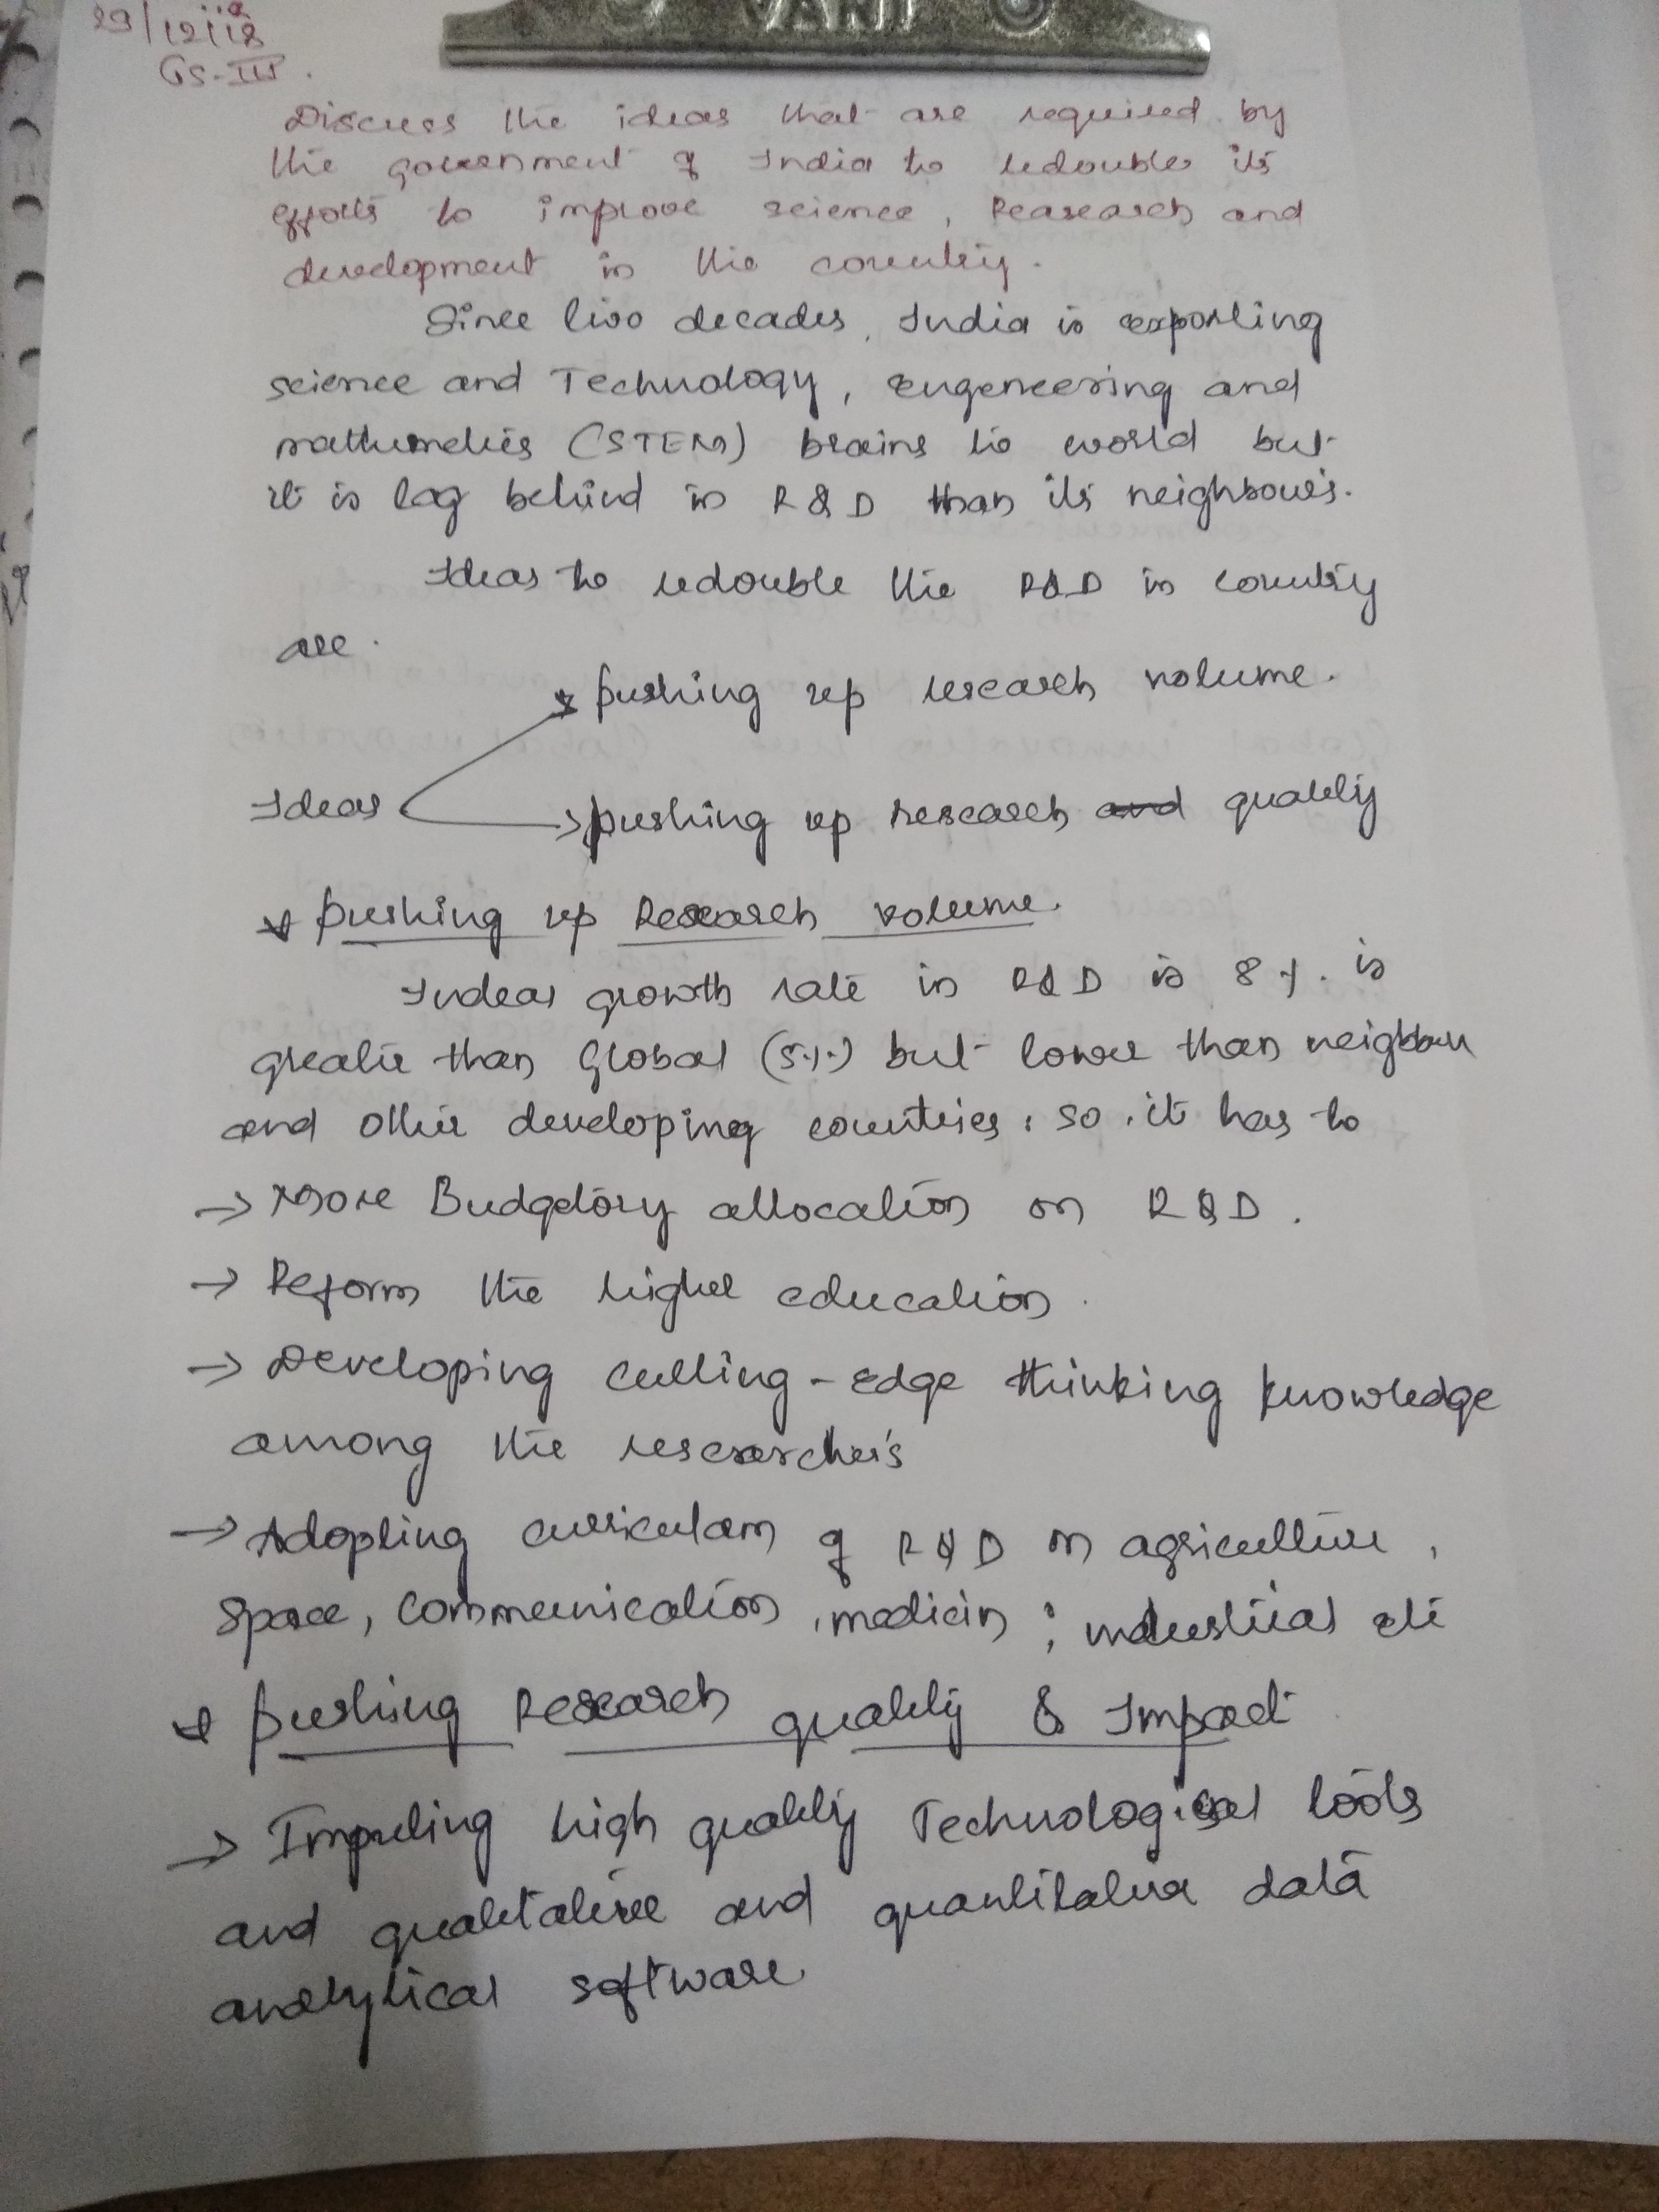 VANI
29/12/18
GS-III.
Discuss the ideas that are required by
the government of India to redouble its
efforts to improve science, Reasearch and
development in the country.
Since two decades, India is exporting
science and Technology, Engeneering and
mathemetics (STEM) brains to world but
it is lag behind in R&D than its neighbours.
Ideas to redouble the R&D in country
are.
* pushing up research volume.
Ideas
→ pushing up research and quality
* pushing up Research volume.
Indeas growth rate in R&D is 8%. is
greater than Global (5%) but lower than neighbour
and other developing countries. so, it has to
→ More Budgetory allocation on R&D.
→ Reform the higher education.
→ Developing cutting-edge thinking knowledge
among the researchers
→ Adopting curriculam of R&D on agriculture,
Space, Communication, medicin, industrial etc
* pushing Research quality & Impact
→ Imputing high quality Technological tools
and qualitative and quantitative data
analytical software